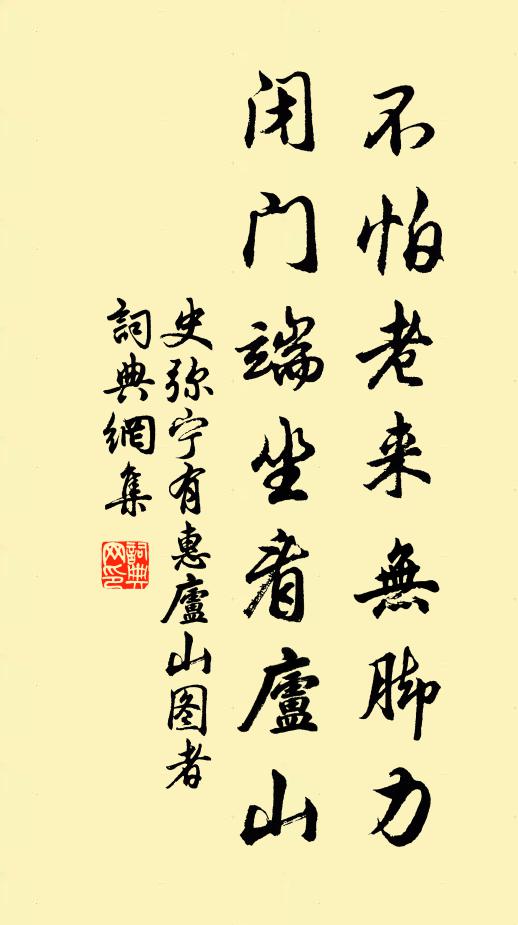 不怕老来無脚力
闭门端坐看廬山
史弥宁有惠廬山图者
詞典網集
詞典网印